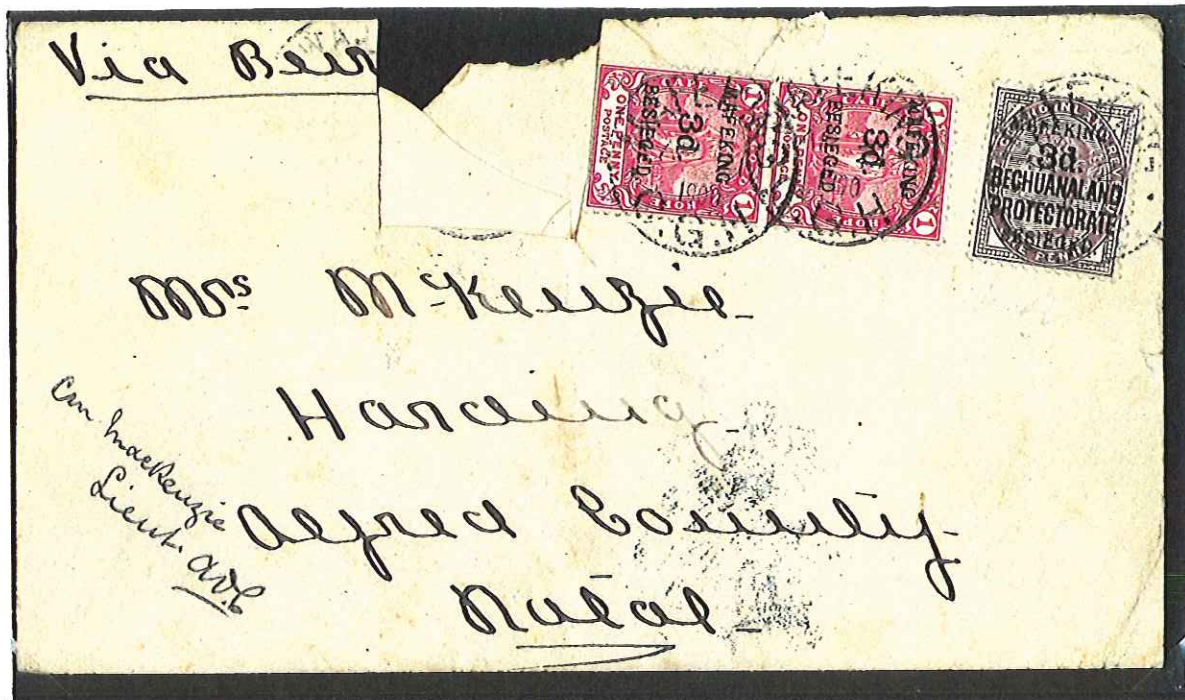 Via Beir
CAPE
1
MAFEKING
3d.
BESIEGED
ONE PENNY
POSTAGE
HOPE
1
1
MAFEKING
3d.
BESIEGED
HOPE
1
MAFEKING
3d.
BECHUANALAND
PROTECTORATE
BESIEGED
PENNY
Mrs McKenzie
Harding
Alfred County
Natal
MacKenzie
Lieut.